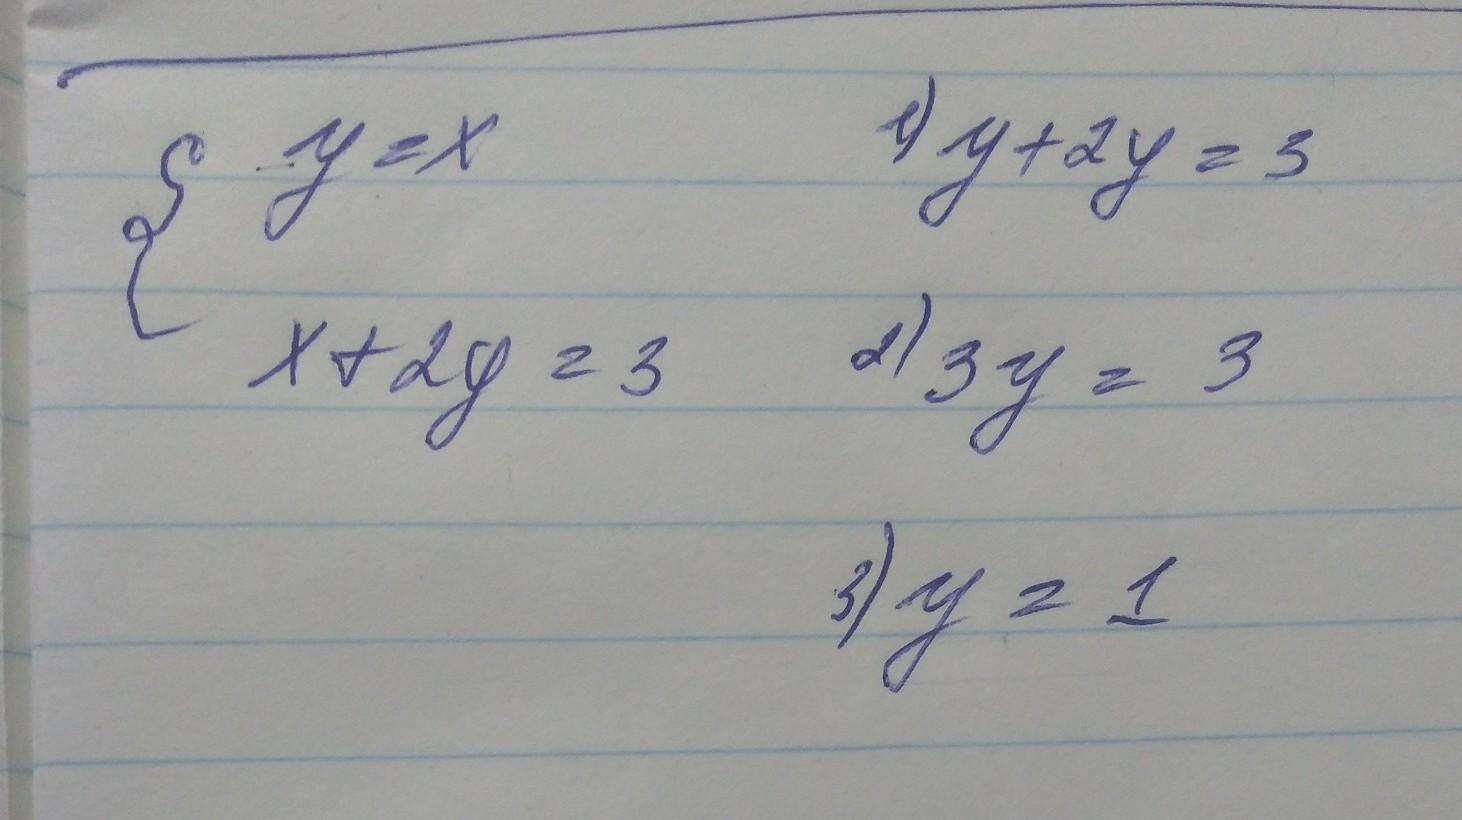 y = x
x + 2y = 3
1) y + 2y = 3
2) 3y = 3
3) y = 1